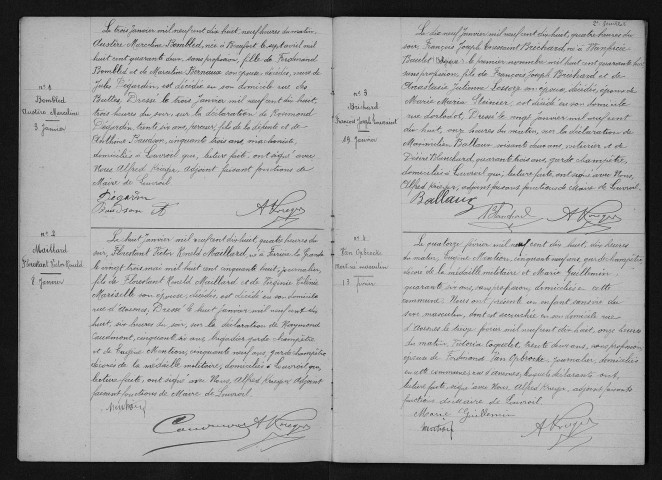 n° 1
Bombled
Austère Marceline
3 Janvier
Le trois Janvier mil neuf cent dix huit, neuf heures du matin,
Austère Marceline Bombled, née à Beaufort le sept avril mil
huit cent quarante deux, sans profession, fille de Ferdinand
Bombled et de Marceline son épouse, décédés, veuve de
Jules Dégardin, est décédée en son domicile rue des
Bulles. Dressé le trois Janvier mil neuf cent dix huit,
trois heures du soir, sur la déclaration de Raymond
Dégardin, trente six ans, fils de la défunte et de
cinquante trois ans
domiciliés à Louvroil qui, lecture faite, ont signé avec
Nous Alfred Kruger, adjoint faisant fonctions de
Maire de Louvroil.
Dégardin
A Kruger
n° 2
Maillard
Florestant Victor Renéld
8 Janvier
Le huit Janvier mil neuf cent dix huit, quatre heures du
soir, Florestant Victor Renéld Maillard, né à Ferrière la Grande
le vingt trois mai mil huit cent cinquante huit, journalier,
fils de Florestant Renéld Maillard et de Virginie
son épouse, décédés, est décédé en son domicile
rue d'Avesnes. Dressé le huit Janvier mil neuf cent dix
huit, six heures du soir, sur la déclaration de Raymond
cinquante six ans brigadier garde champêtre
et de Eugène Mention, cinquante neuf ans, garde champêtre
décoré de la médaille militaire, domiciliés à Louvroil qui,
lecture faite, ont signé avec Nous, Alfred Kruger adjoint
faisant fonctions de Maire de Louvroil.
Mention
A Kruger
2e feuillet
n° 3
Brichard
François Joseph Toussaint
19 Janvier
Le dix neuf Janvier mil neuf cent dix huit, quatre heures du
soir, François Joseph Toussaint Brichard, né à
le premier novembre mil huit cent quarante huit
sans profession, fils de François Joseph Brichard et de
Anastasie Julienne son épouse, décédés, époux de
Marie Marie est décédé en son domicile
rue Dressé le vingt Janvier mil neuf cent
dix huit, onze heures du matin, sur la déclaration de
Maximilien Ballaux soixante deux ans, voiturier et de
Désiré Blanchard, quarante trois ans, garde champêtre,
domiciliés à Louvroil qui, lecture faite, ont signé avec Nous,
Alfred Kruger, adjoint faisant fonctions de Maire de Louvroil.
Ballaux
Blanchard
A Kruger
n° 4
Van Opbrocke
Mort né masculin
13 février
Le quatorze février mil neuf cent dix huit, dix heures
du matin, Eugène Mention, cinquante neuf ans, garde champêtre
décoré de la médaille militaire et Marie Guillemin
quarante six ans, sans profession, domiciliés en cette
commune. Nous ont présenté un enfant sans vie du
sexe masculin, dont est accouchée en son domicile rue
d'Avesnes le treize février mil neuf cent dix huit, onze heures
du matin, Victoria Coquelet, trente deux ans, sans profession,
épouse de Ferdinand Van Opbrocke, journalier, domiciliés
en cette commune rue d'Avesnes, lesquels déclarants ont,
lecture faite, signé avec Nous, Alfred Kruger, adjoint faisant
fonctions de Maire de Louvroil.
Marie Guillemin
Mention
A Kruger